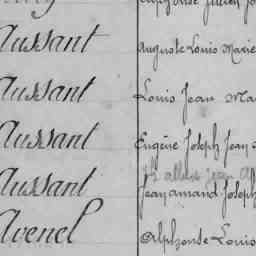 Aussant Auguste Louis Marie
Aussant Louis Jean Ma
Aussant Eugène Joseph Jean
Aussant Jean amand Joseph
Avenel Alphonse Louis